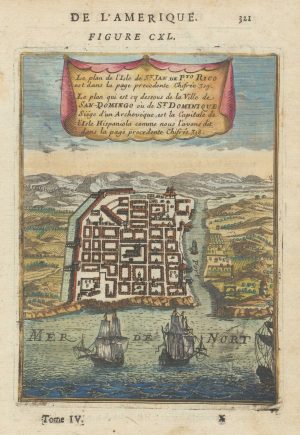 DE L'AMERIQUE. 321
FIGURE CXL.
Le plan de l'Isle de St. JAN DE PTO RICO
est dans la page precedente Chifrée 319.
Le plan qui est cy dessous de la Ville de
SAN-DOMINGO ou de St. DOMINIQUE
Siege d'un Archevêque, est la Capitale de
l'Isle Hispaniola comme nous l'avons dit
dans la page precedente Chifrée 318.
MER DE NORT
Tome IV. X